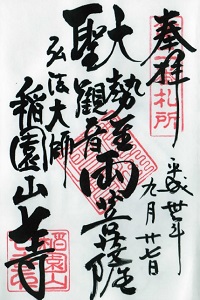 奉拝
札所
平成
九月廿七日
大勢至
聖観音
両菩薩
弘法大師
稲園山七寺
稲園山